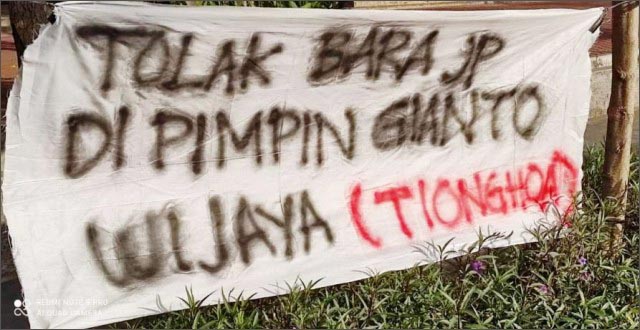 TOLAK BARA JP
DI PIMPIN GIANTO
WIJAYA (TIONGHOA)
REDMI NOTE 8 PRO
AI QUAD CAMERA